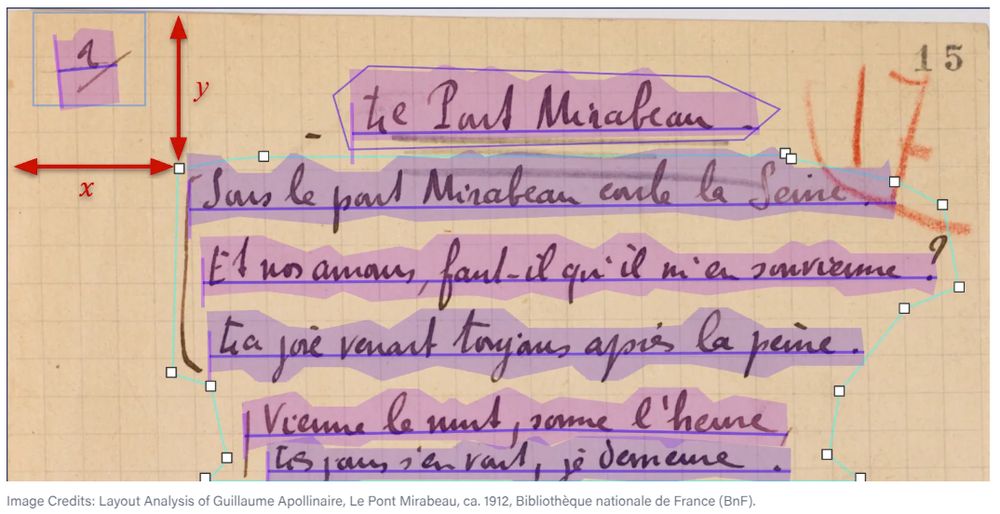 15
y
Le Pont Mirabeau.
x
Sous le pont Mirabeau coule la Seine.
Et nos amours, faut-il qu'il m'en souvienne ?
La joie venait toujours après la peine.
Vienne la nuit, sonne l'heure,
Les jours s'en vont, je demeure.
Image Credits: Layout Analysis of Guillaume Apollinaire, Le Pont Mirabeau, ca. 1912, Bibliothèque nationale de France (BnF).